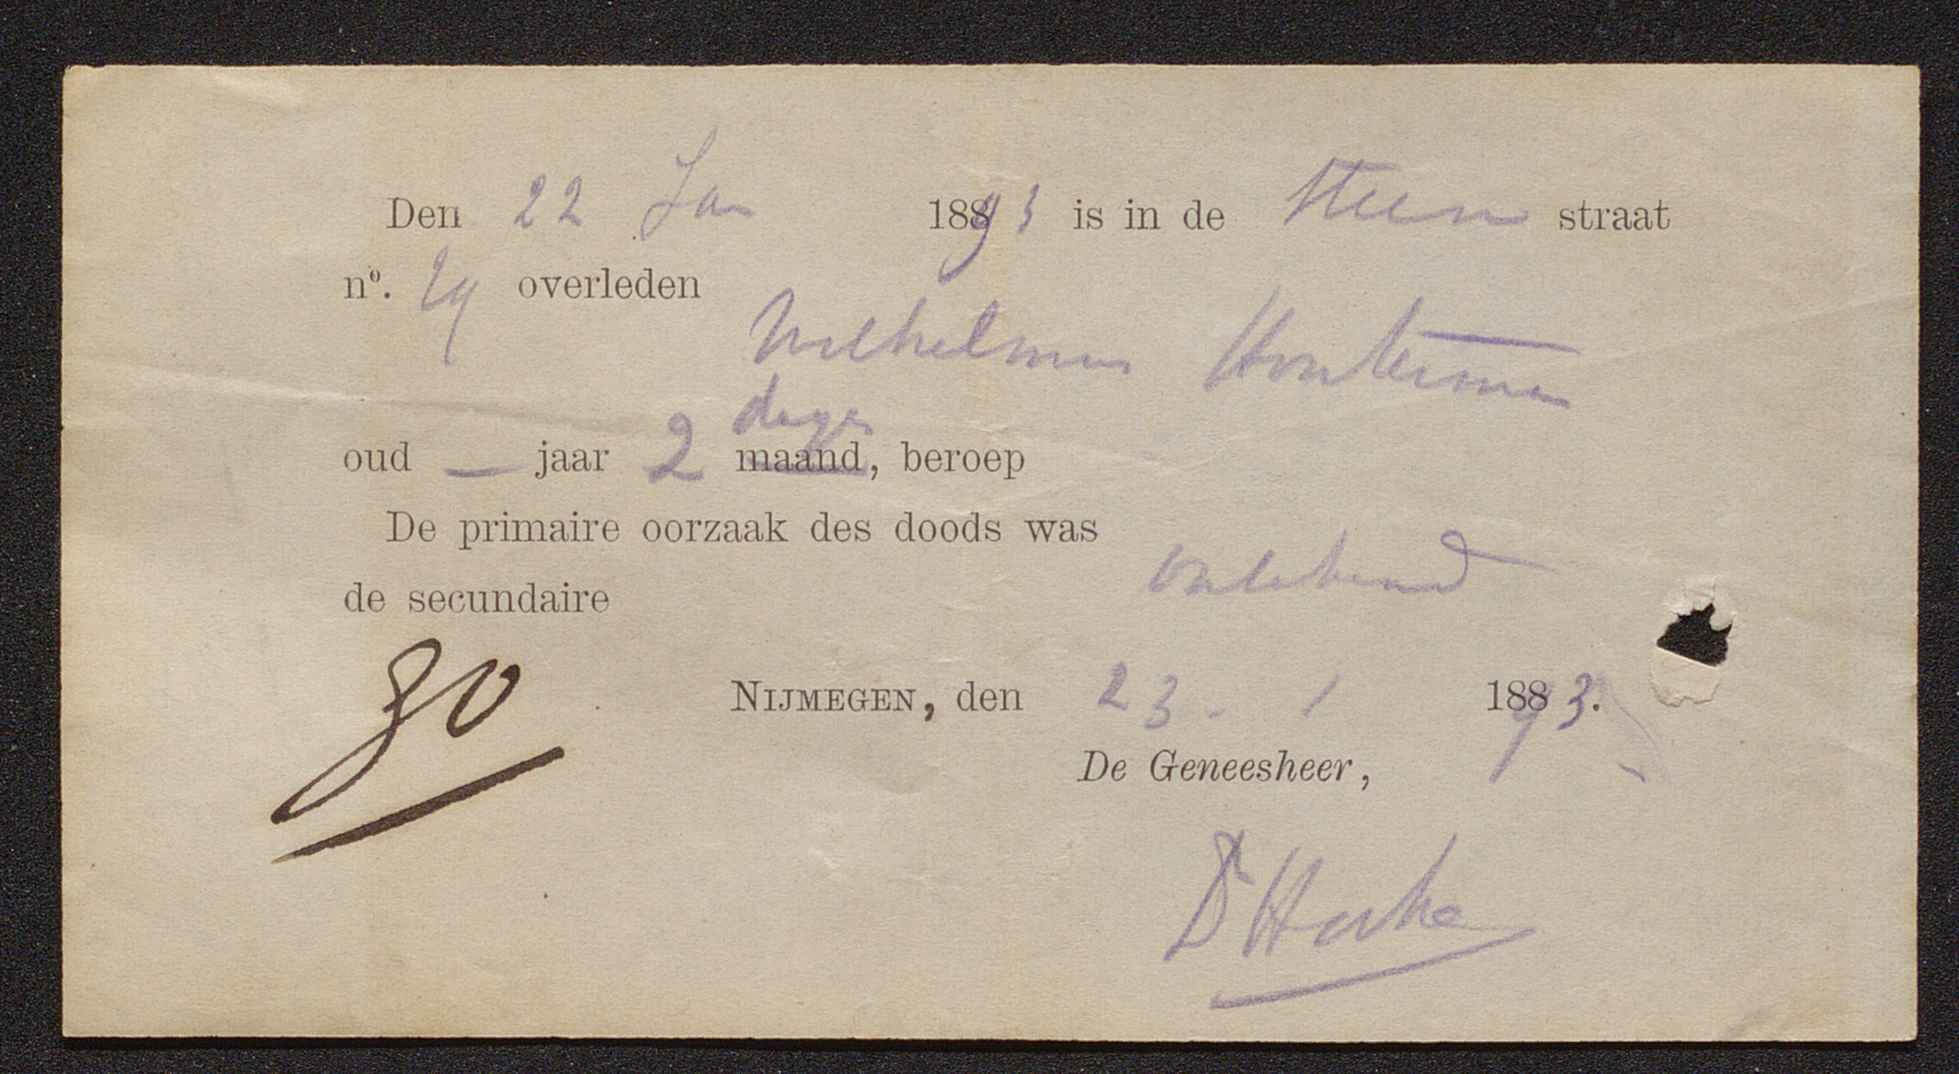 Den 22 Jan 1893 is in de Steen straat
nº. 29 overleden
Wilhelmus Houterman
dagen
oud — jaar 2 maand, beroep
De primaire oorzaak des doods was
onbekend
de secundaire
30
NIJMEGEN, den 23 - 1 1893.
De Geneesheer,
Dr